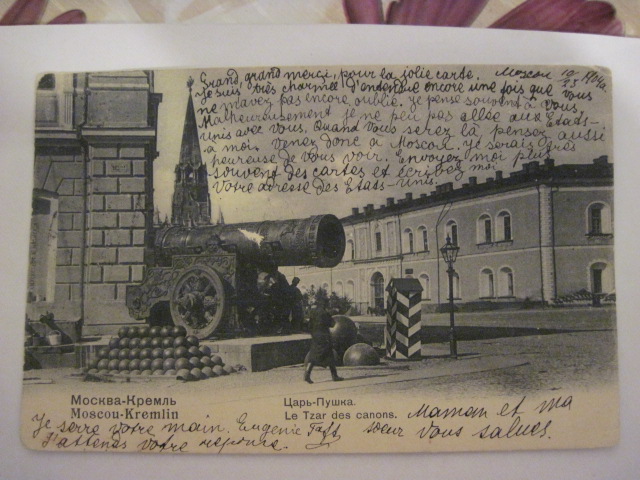 Grand, grand merci, pour la jolie carte. Moscou 1904.
je suis très charmée d'entendre encore une fois que vous
ne m'avez pas encore oublié. je pense souvent à vous,
Malheureusement je ne peu pas allée aux États-
Unis avec vous. Quand vous serez là pensez aussi
à moi. Venez donc à Moscou. je serais très
heureuse de vous voir. Envoyez moi plus
souvent des cartes et écrivez moi
votre adresse des États-Unis.
Москва-Кремль
Moscou-Kremlin
Царь-Пушка.
Le Tzar des canons.
Maman et ma
soeur vous salues.
je serre votre main. Eugenie
J'attends votre reponse.